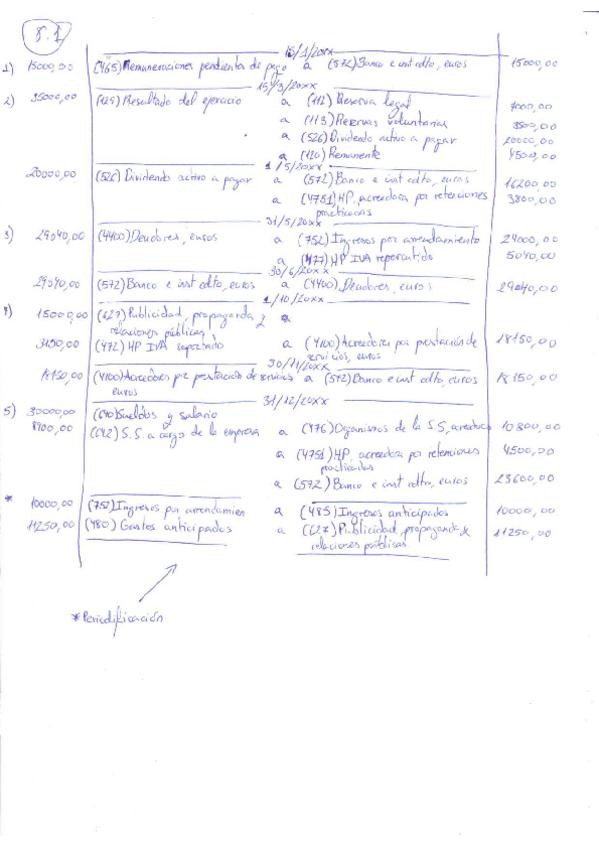 8.1
15/1/20xx
1) 15000,00 (465) Remuneraciones pendientes de pago a (572) Banco e inst cdto, euros 15000,00
15/3/20xx
2) 35000,00 (129) Resultado del ejercicio a (112) Reserva legal 7000,00
a (113) Reservas voluntarias 3500,00
a (526) Dividendo activo a pagar 20000,00
a (120) Remanente 4500,00
1/5/20xx
20000,00 (526) Dividendo activo a pagar a (572) Banco e inst cdto, euros 16200,00
a (4751) HP, acreedora por retenciones 3800,00
practicadas
31/5/20xx
3) 29040,00 (4400) Deudores, euros a (752) Ingresos por arrendamiento 24000,00
a (477) HP IVA repercutido 5040,00
30/6/20xx
29040,00 (572) Banco e inst cdto, euros a (4400) Deudores, euros 29040,00
1/10/20xx
4) 15000,00 (627) Publicidad, propaganda y a
relaciones públicas
3150,00 (472) HP IVA soportado a (4100) Acreedores por prestación de 18150,00
servicios, euros
30/11/20xx
18150,00 (4100) Acreedores por prestación de servicios a (572) Banco e inst cdto, euros 18150,00
euros
31/12/20xx
5) 30000,00 (640) Sueldos y salario
8900,00 (642) S.S. a cargo de la empresa a (476) Organismos de la S.S, acreedora 10800,00
a (4751) HP, acreedora por retenciones 4500,00
practicadas
a (572) Banco e inst cdto, euros 23600,00
* 10000,00 (752) Ingresos por arrendamien a (485) Ingresos anticipados 10000,00
11250,00 (480) Gastos anticipados a (627) Publicidad, propaganda & 11250,00
relaciones públicas
*Periodificación